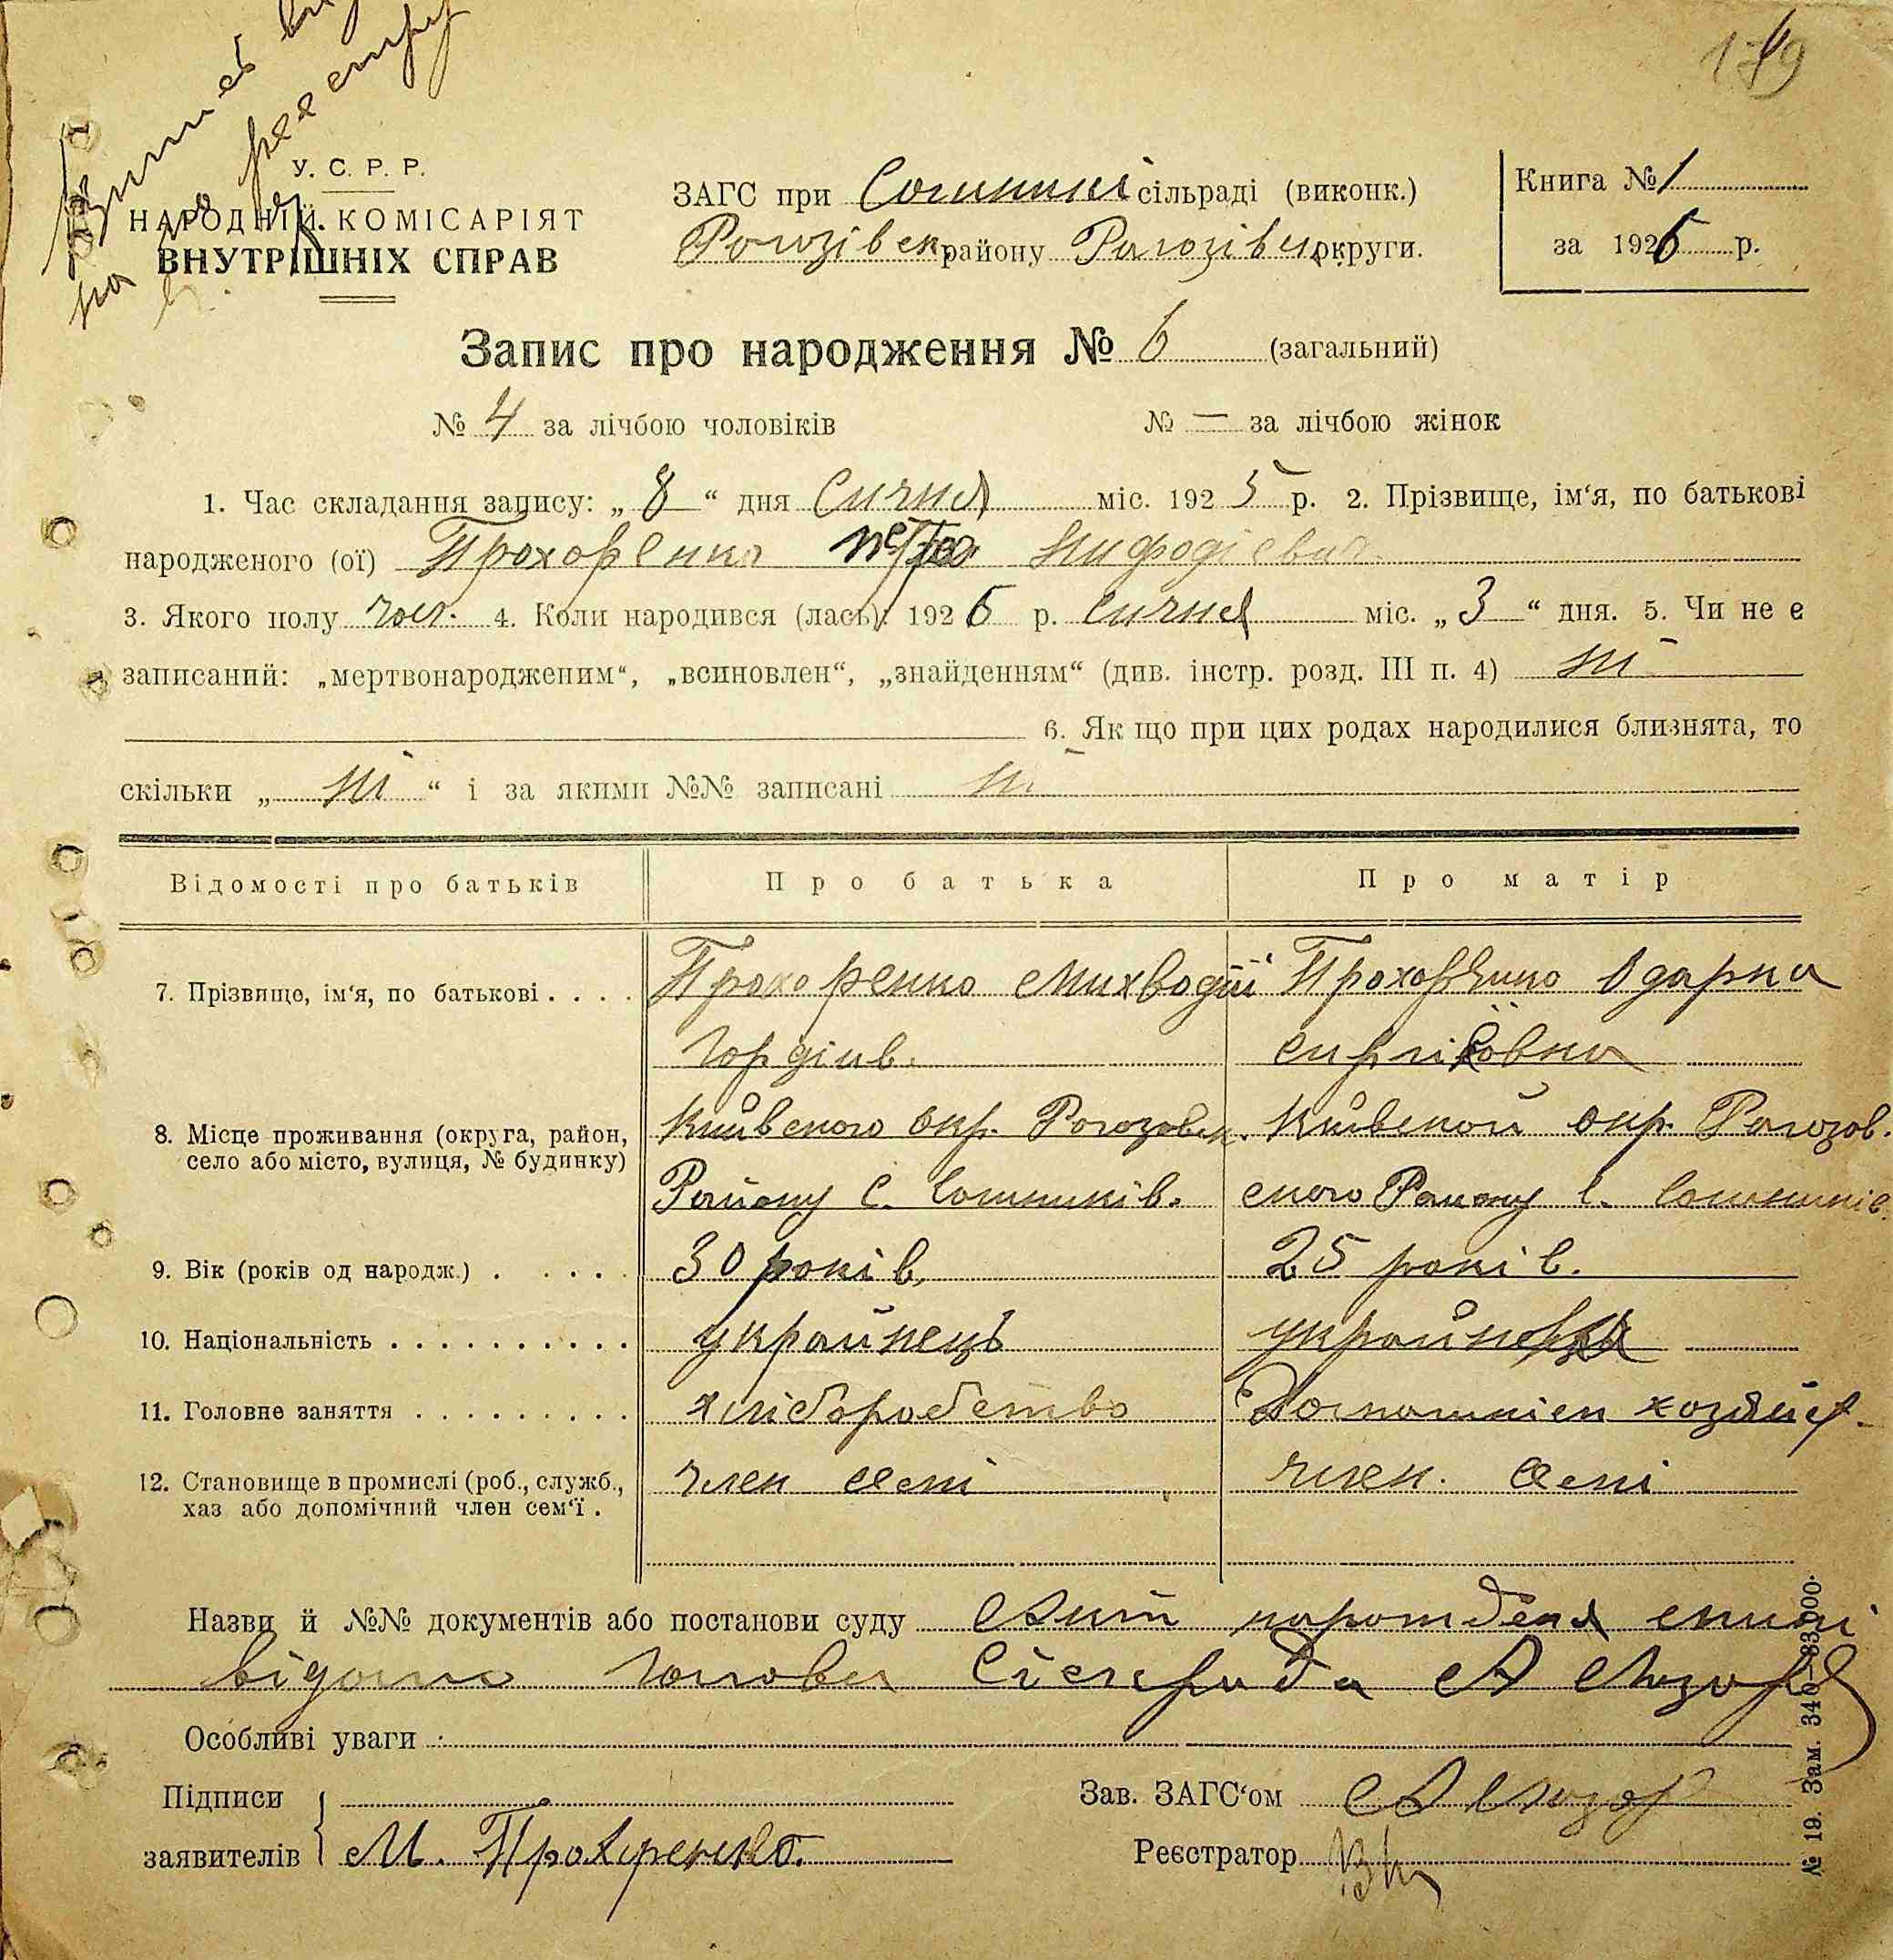 119
У. С. Р. Р.
НАРОДНІЙ КОМІСАРІЯТ
ВНУТРІШНІХ СПРАВ
ЗАГС при Сошникі сільраді (виконк.)
Рогозівск району Рогозівск округи.
Книга № 1
за 1926 р.
Запис про народження № 6 (загальний)
№ 4 за лічбою чоловіків № — за лічбою жінок
1. Час складання запису: „ 8 “ дня Сичня міс. 192 5 р. 2. Прізвище, ім‘я, по батькові
народженого (ої) Прохоренко Петро Мифодієвич
3. Якого полу чол. 4. Коли народився (лась): 192 6 р. Сичня міс. „ 3 “ дня. 5. Чи не є
записаний: „мертвонародженим“, „всиновлен“, „знайденням“ (див. інстр. розд. III п. 4) ні
6. Як що при цих родах народилися близнята, то
скільки „ ні “ і за якими №№ записані ні
Відомості про батьків Про батька Про матір
7. Прізвище, ім‘я, по батькові . . . . Прохоренко Михводій Прохоренко Одарка
Гордіив.
8. Місце проживання (округа, район, Київского окр. Рогозовск. Київской окр. Рогозов.
село або місто, вулиця, № будинку)
Району С. Сошників. ского Району С. Сошників.
9. Вік (років од народж.) . . . . . 30 років. 25 років.
10. Національність . . . . . . . . . . українець українка
11. Головне заняття . . . . . . . . . . хліборобство Домашнієм хозяйст.
12. Становище в промислі (роб., служб., член семі член. семі
хаз або допомічний член сем‘ї .
Назви й №№ документів або постанови суду Акт
голова Сільради А Лизор
Особливі уваги
Підписи
заявителів М. Прохоренко.
Зав. ЗАГС‘ом А Лизор
Реєстратор
№ 19. Зам. 340—83.000.